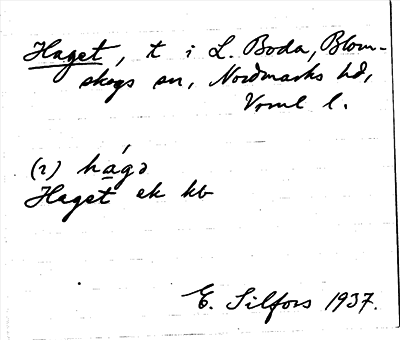 Haget, t i L. Boda, Blom-
skogs sn, Nordmarks hd,
Vrml l.
(2) hágə
Haget ek kb
E. Silfors 1937.